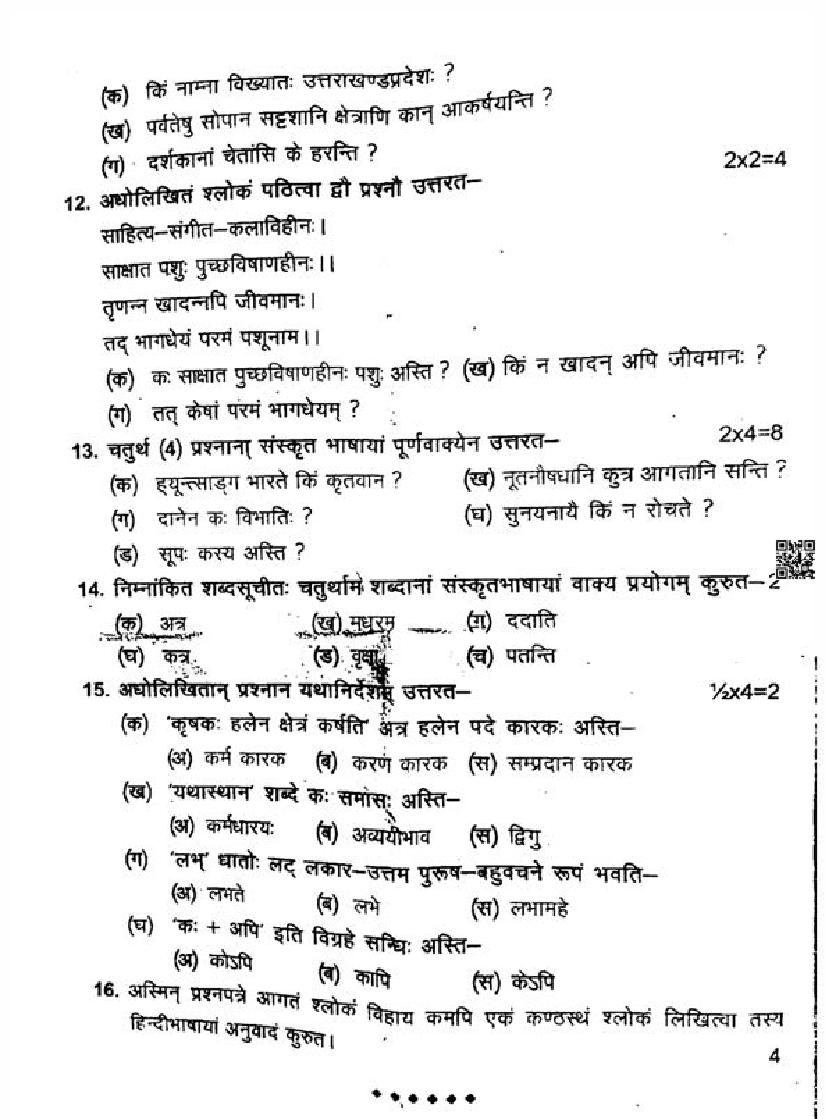 (क) किं नाम्ना विख्यातः उत्तराखण्डप्रदेशः ?
(ख) पर्वतेषु सोपान सट्टशानि क्षेत्राणि कान् आकर्षयन्ति ?
(ग) दर्शकानां चेतांसि के हरन्ति ?
12. अधोलिखितं श्लोकं पठित्वा द्वौ प्रश्नौ उत्तरत– 2x2=4
साहित्य–संगीत–कलाविहीनः।
साक्षात पशुः पुच्छविषाणहीनः।।
तृणन्न खादन्नपि जीवमानः।
तद् भागधेयं परमं पशूनाम।।
(क) कः साक्षात पुच्छविषाणहीनः पशुः अस्ति ? (ख) किं न खादन् अपि जीवमानः ?
(ग) तत् केषां परमं भागधेयम् ?
13. चतुर्थ (4) प्रश्नाना् संस्कृत भाषायां पूर्णवाक्येन उत्तरत– 2x4=8
(क) ह्यून्त्साङ्ग भारते किं कृतवान ? (ख) नूतनौषधानि कुत्र आगतानि सन्ति ?
(ग) दानेन कः विभातिः ? (घ) सुनयनायै किं न रोचते ?
(ड) सूपः कस्य अस्ति ?
14. निम्नांकित शब्दसूचीतः चतुर्थामे शब्दानां संस्कृतभाषायां वाक्य प्रयोगम् कुरुत–2
(क) अत्र (ख) मधुरम (ग) ददाति
(घ) कत्र (ड) वृक्षा (च) पतन्ति
15. अधोलिखितान् प्रश्नान यथानिर्देशम् उत्तरत– ½x4=2
(क) 'कृषकः हलेन क्षेत्रं कर्षति' अत्र हलेन पदे कारकः अस्ति–
(अ) कर्म कारक (ब) करण कारक (स) सम्प्रदान कारक
(ख) 'यथास्थान' शब्दे कः समासः अस्ति–
(अ) कर्मधारयः (ब) अव्ययीभाव (स) द्विगु
(ग) 'लभ्' धातोः लट् लकार–उत्तम पुरूष–बहुवचने रूपं भवति–
(अ) लभते (ब) लभे (स) लभामहे
(घ) 'कः + अपि' इति विग्रहे सन्धिः अस्ति–
(अ) कोऽपि (ब) कापि (स) केऽपि
16. अस्मिन् प्रश्नपत्रे आगतं श्लोकं विहाय कमपि एकं कण्ठस्थं श्लोकं लिखित्वा तस्य
हिन्दीभाषायां अनुवादं कुरुत। 4